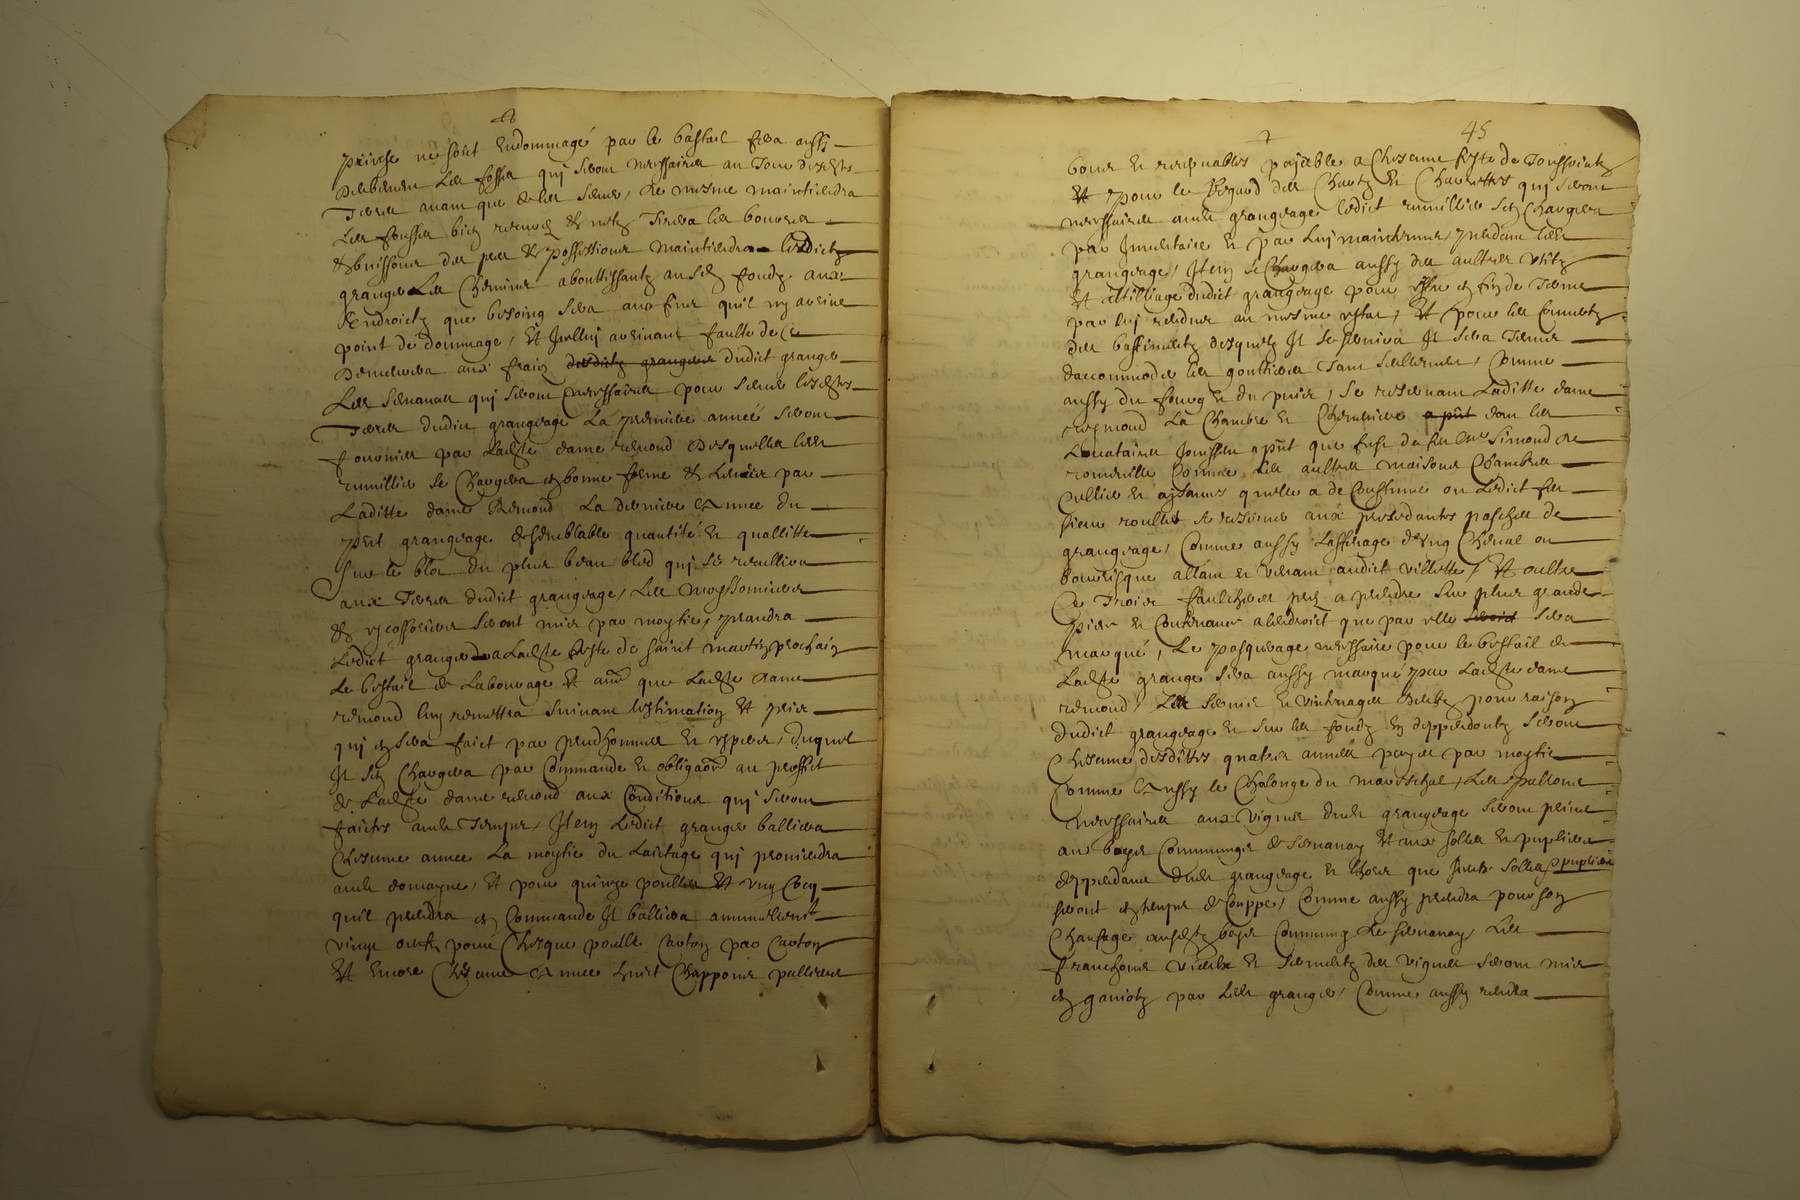 prinse ne soit Endommagé par le bastail fera aussy
Terres avant que de les semer, de mesme maintiendra
Les fousses bien relevez & netz Tirera les bouvees
& buissons des prez & possessions maintiendra ledict
granger Les Chemins aboutissantz ausd fondz aux
Endroictz que besoing sera aux fins qu'il ny aveine
point de dommage, Et Icelluy avenant faulte de Ce
Demeurera aux fraiz desdictz grangers dudict granger
Les semances qui seront necessaires pour semer lesdittes
Terres dudict grangeage La premiere année seront
fournies par Ladte dame remond Desquelles led
rumillier se Chargera en bonne forme &
Laditte dame Remond La derniere Année du
pnt grangeage de semblable quantité Et quallitte
sur le bloc du plus beau bled qui se recullira
aux Terres dudict grangeage, Les moyssonneurs
& escosseurs seront mis par moytie, prandra
Ledict granger a Ladte feste de saint martin prochain
Le bestail de Labourage Et aultre que Ladte dame
remond luy remettra suivant lestimation Et prix
qui en sera faict par preudhommes Et expers, duquel
Il sen Chargera par Commande Et obligaon au proffict
de Ladte dame remond aux Conditions qui seront
faictes audt Temps, Item Ledict granger balliera
Chescune annee La moytie du Laictage qui proviendra
audt domayne, Et pour quinze poulles Et ung Cocq
quil prendra en Commande Il balliera annuellement
vingt oeufz pour Chesque poulle Carton par Carton
Et Encore Chescune Annee huict Chappons palliers
45
bons Et recepvables payable a Chescune feste de Toussaintz
Et pour le Regard des Chartz Et Charrettes qui seront
necessaires audt grangeage ledict rumillier sen Chargera
par Inventaire Et par luy maintenus pendant led
grangeage, Item se Chargera aussy des aultres utilz
Et attillage dudict grangeage pour Estre en fin de Terme
par luy rendus au mesme estat, Et pour les Couvertz
des bastimentz desquelz Il se servira Il sera Tenus
daccommoder les gouttieres Tant seullement, Comme
aussy du fourg Et du puis, se reservant Laditte dame
remond La Chambre Et Cheminee a pnt dont les
Locataires Jouissent a pnt que fust de feu Mr Simond de
romeville Comme les aultres maisons Chambres
Cellier Et aysances quelle a de Coustume ou Ledict feu
sieur roullet se reserver aux precedantes pasches de
grangeage, Comme aussy Laffenage d'ung Cheval ou
bourrique allant Et venant audict villette, Et oultre
Ce Trois faulcheees prez a prendre sur plus grande
piece Et Contenance alendroict que par elle seroit sera
marqué, Le pasqueage necessaire pour le bestail de
Ladte grange sera aussy marqué par Ladte dame
remond, Les servis Et vintenages deubz pour raison
dudict grangeage Et sur les fondz En deppendantz seront
Chescune desdittes quatres années payés par moytie
Comme Aussy le Chalonge du mareschal, Les pallons
necessaires aux vignes dudt grangeage seront prins
aux boys Communs de servanay Et aux
deppendant dudt grangeage Et lhors que
seront en temps de Couppe, Comme aussy prendra pour son
Chaufage ausdtz boys Communs de servanay, Les
& sermentz des vignes seront mis
par led granger, Comme aussy rendra